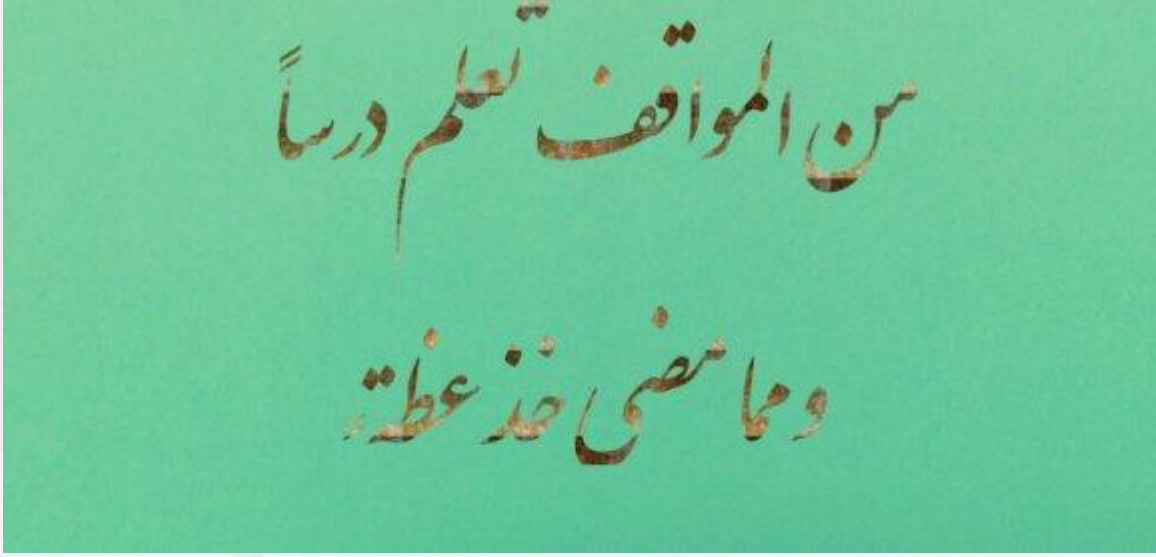 من المواقف تعلم درساً
ومما مضى خذ عظة